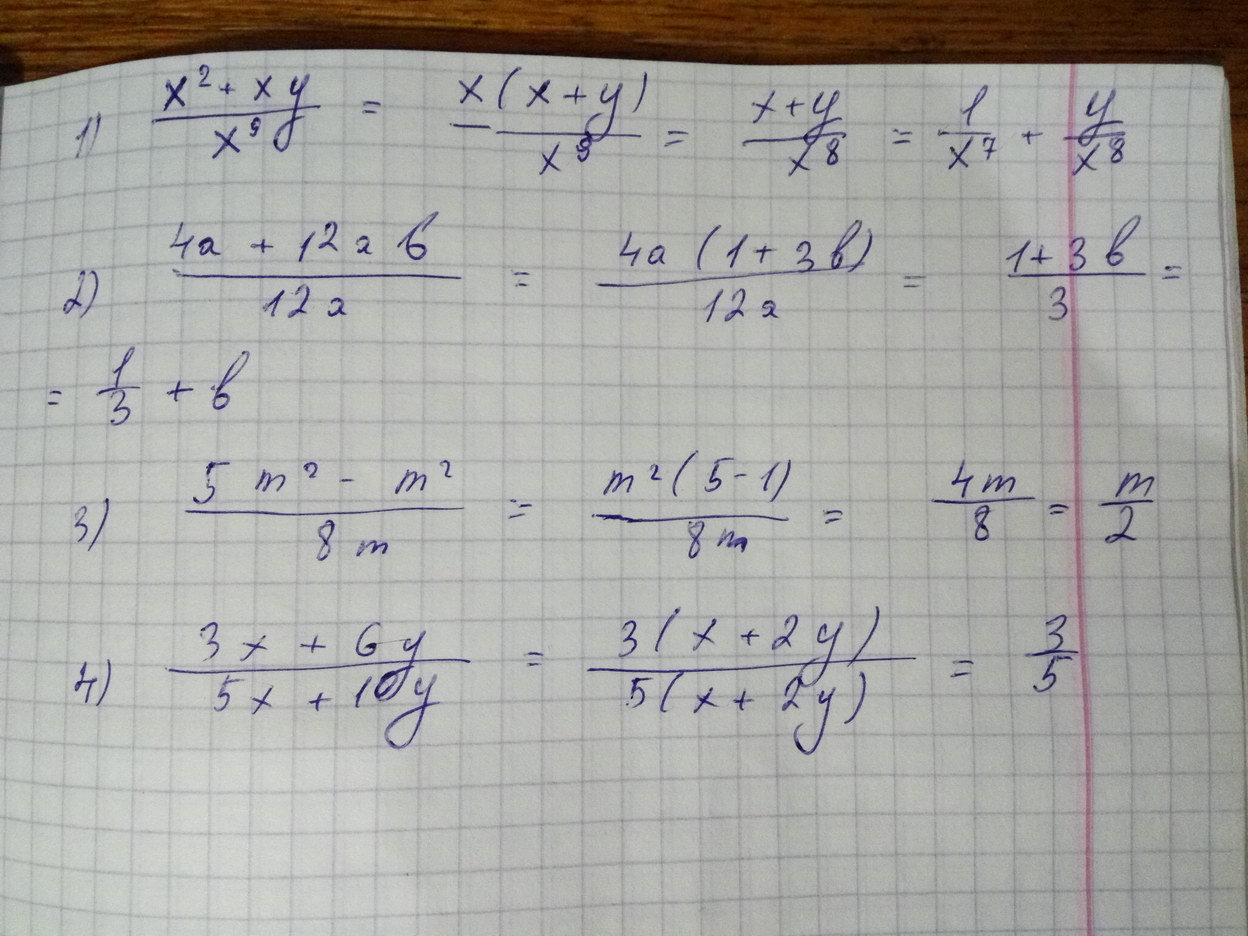 1) (x² + xy)/x⁹ = x(x+y)/x⁹ = (x+y)/x⁸ = 1/x⁷ + y/x⁸
2) (4a + 12ab)/12a = 4a(1+3b)/12a = (1+3b)/3 =
= 1/3 + b
3) (5m² - m²)/8m = m²(5-1)/8m = 4m/8 = m/2
4) (3x + 6y)/(5x + 10y) = 3(x+2y)/5(x+2y) = 3/5